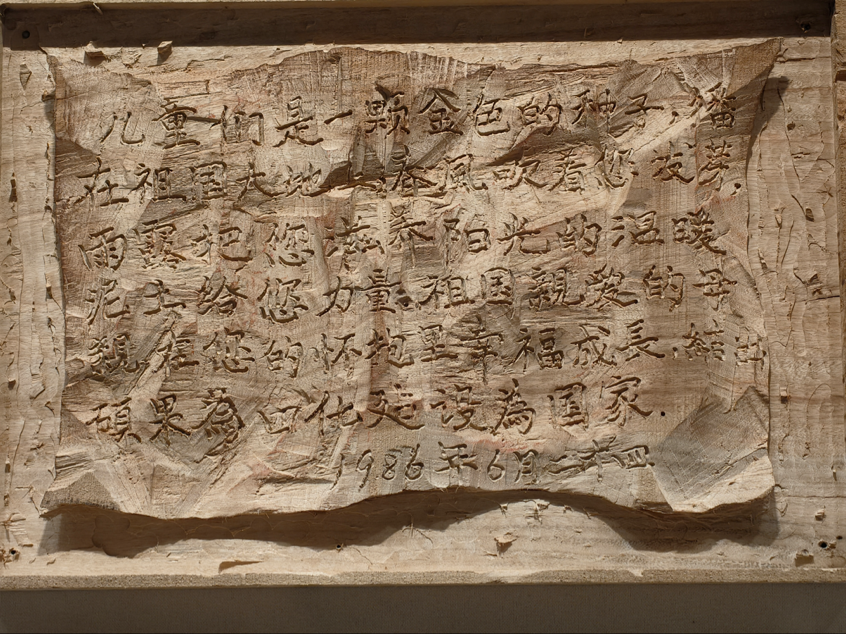 儿童们是一颗金色的种子.播
在祖国大地上春風吹着您发芽.
雨露把您滋养陽光的温暖
泥土给您力量.祖国親愛的母
親在您的怀抱里幸福成長.結出
碩果為四化建设為国家.
1986年6月二十四